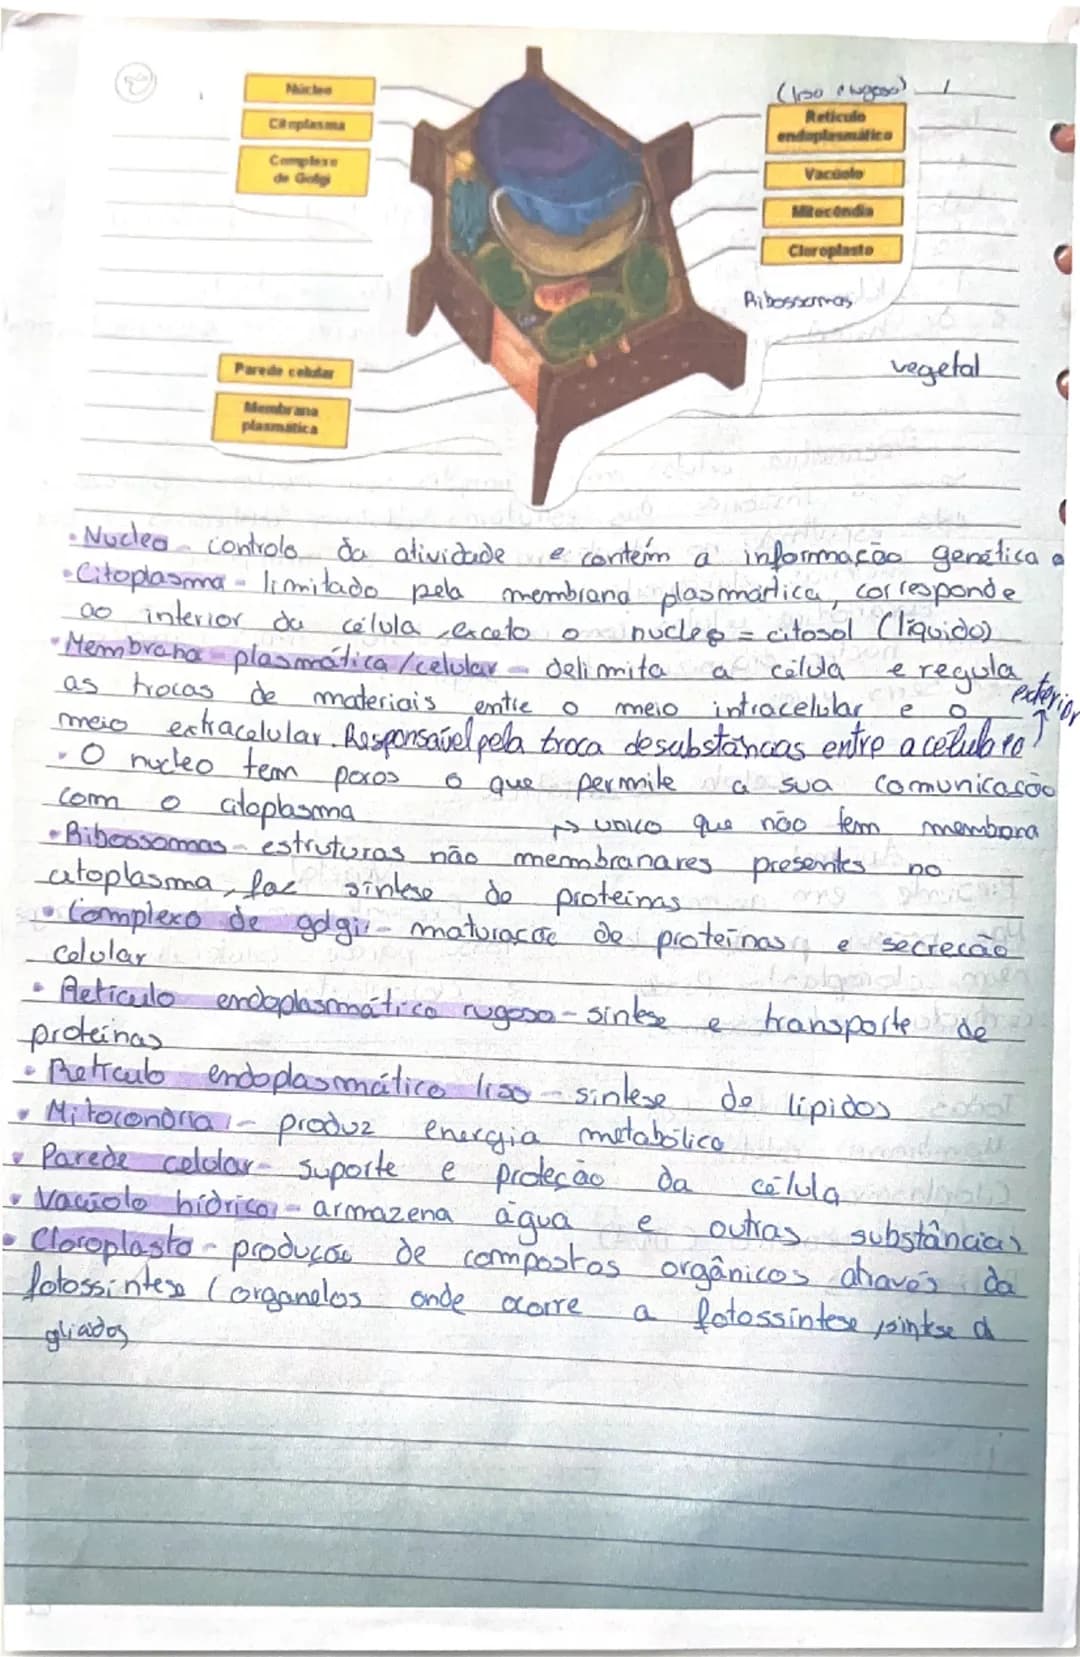 Núcleo
Citoplasma
Complexo
de Golgi
(liso e rugoso)
Retículo
endoplasmático
Vacúolo
Mitocôndia
Cloroplasto
Ribossomas
vegetal
Parede celular
Membrana
plasmática
• Nucleo - controlo da atividade e contém a informação genética
• Citoplasma - limitado pela membrana plasmártica, corresponde
ao interior da célula, exceto o nucleo = citosol (líquido)
• Membrana plasmática/celular - delimita a célula e regula
as trocas de materiais entre o meio intracelular e o
exterior
meio extracelular. Responsável pela troca de substâncias entre a célula e o
• O nucleo tem poros o que permite a sua comunicação
com o citoplasma
→ unico que não tem membrana
• Ribossomas - estruturas não membranares presentes no
citoplasma, faz síntese de proteínas
• Complexo de golgi - maturação de proteínas e secreção
celular
• Retículo endoplasmático rugoso - síntese e transporte de
proteínas
• Retículo endoplasmático liso - síntese de lípidos
• Mitocondria - produz energia metabólica
• Parede celular - suporte e proteção da célula
• Vacúolo hídrico - armazena água e outras substâncias
• Cloroplasto - produção de compostos orgânicos através da
fotossíntese (organelos onde ocorre a fotossíntese, síntese d